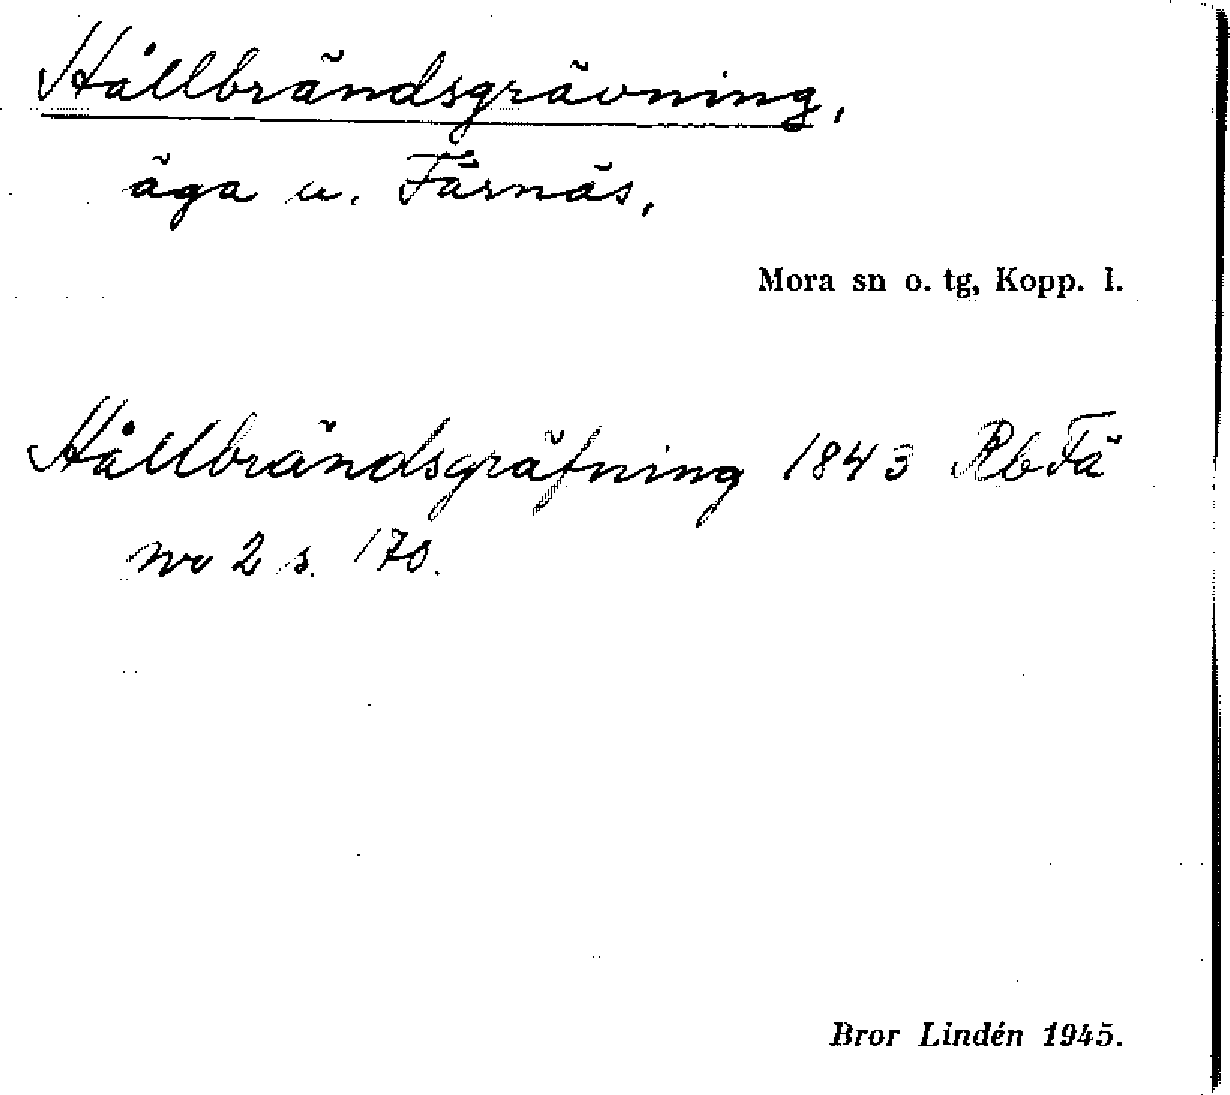 Hållbrändsgrävning,
äga u. Färnäs,
Mora sn o. tg, Kopp. l.
Hållbrändsgräfning 1843 Rb Fä
nr 2 s. 170.
Bror Lindén 1945.